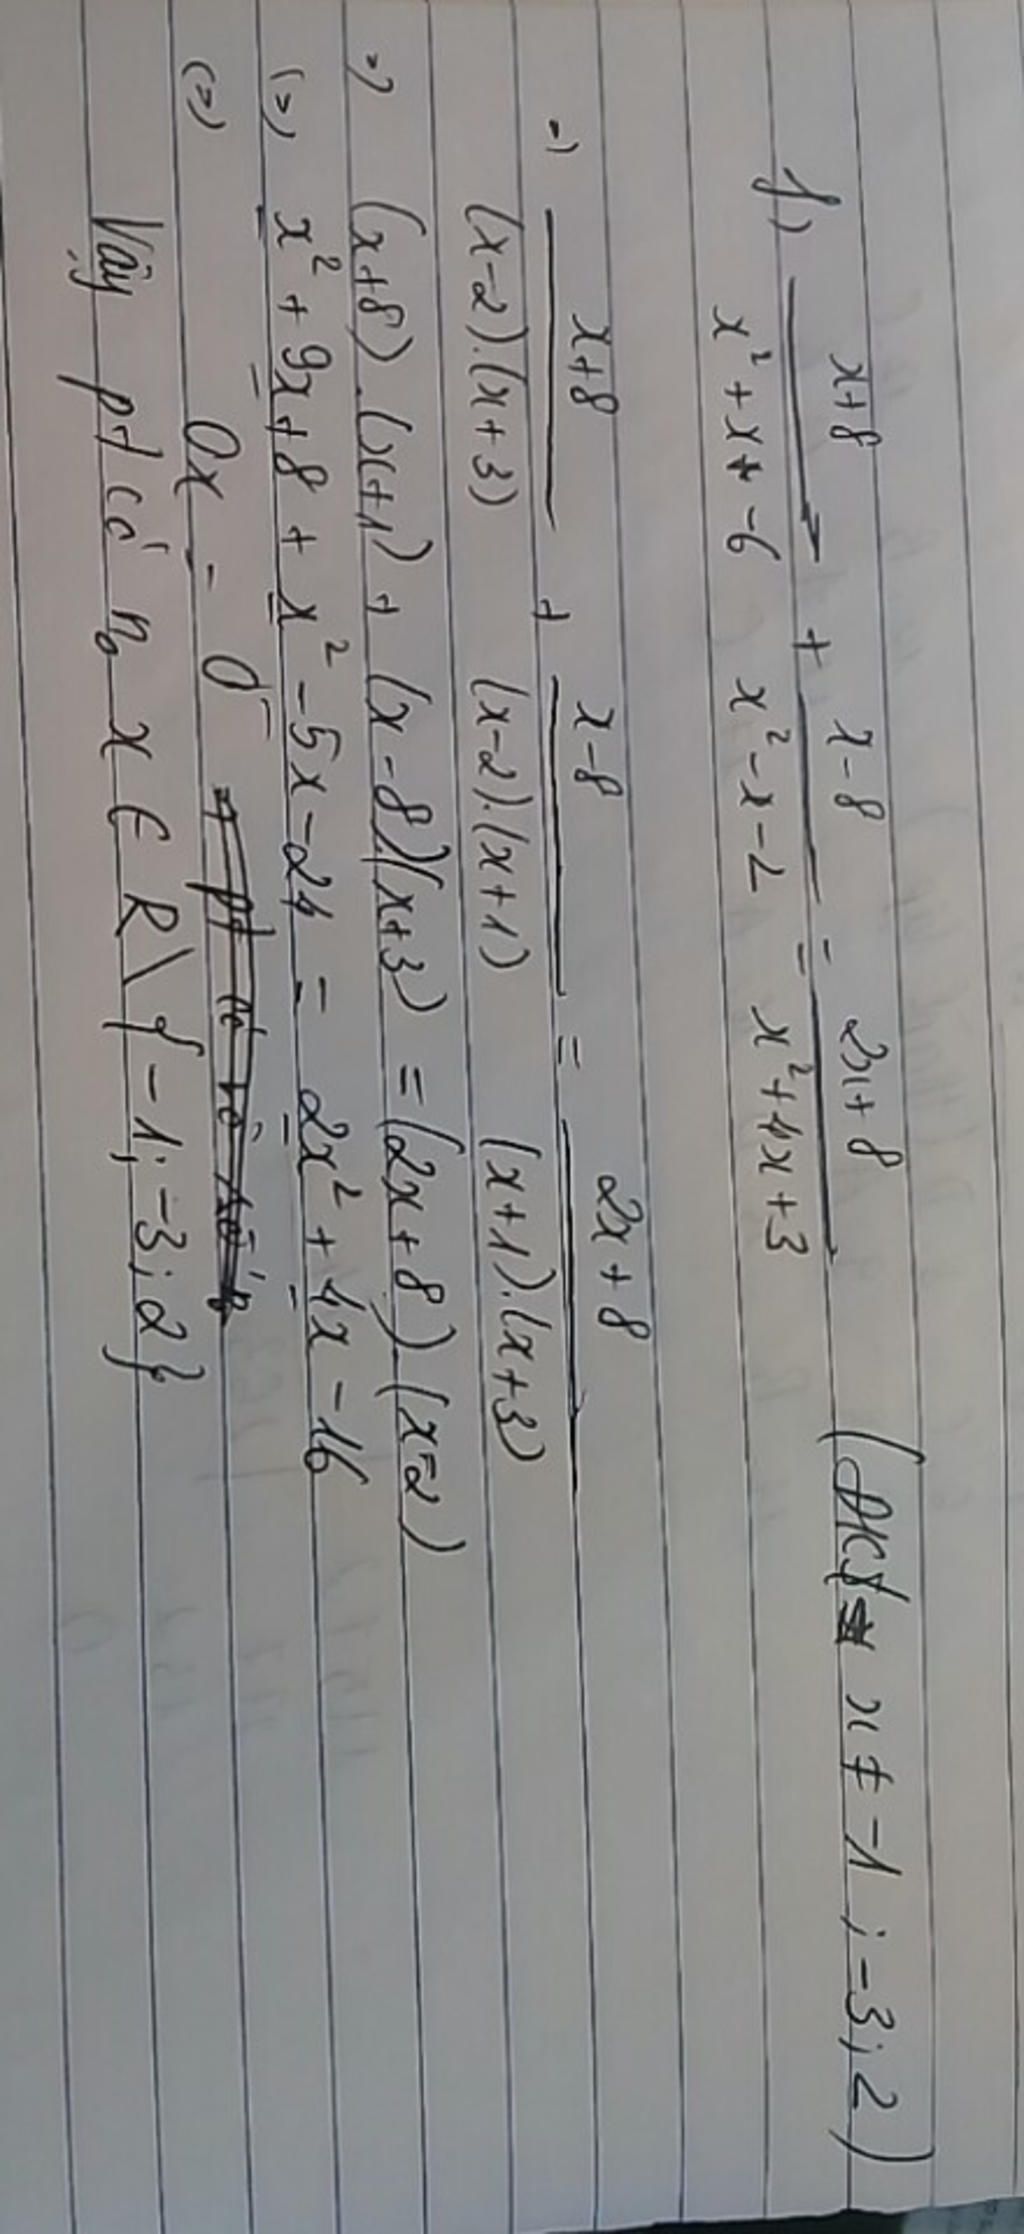 f) (x+8)/(x² + x - 6) + (x-8)/(x² - x - 2) = (2x+8)/(x² + 4x + 3) (ĐK x ≠ -1 ; -3 ; 2)
=) (x+8)/((x-2).(x+3)) + (x-8)/((x-2).(x+1)) = (2x+8)/((x+1).(x+3))
=) (x+8).(x+1) + (x-8)(x+3) = (2x+8)(x-2)
(=) x² + 9x + 8 + x² - 5x - 24 = 2x² + 4x - 16
(=) 0x = 0
Vậy pt có n₀ x ∈ R \ { -1; -3; 2}